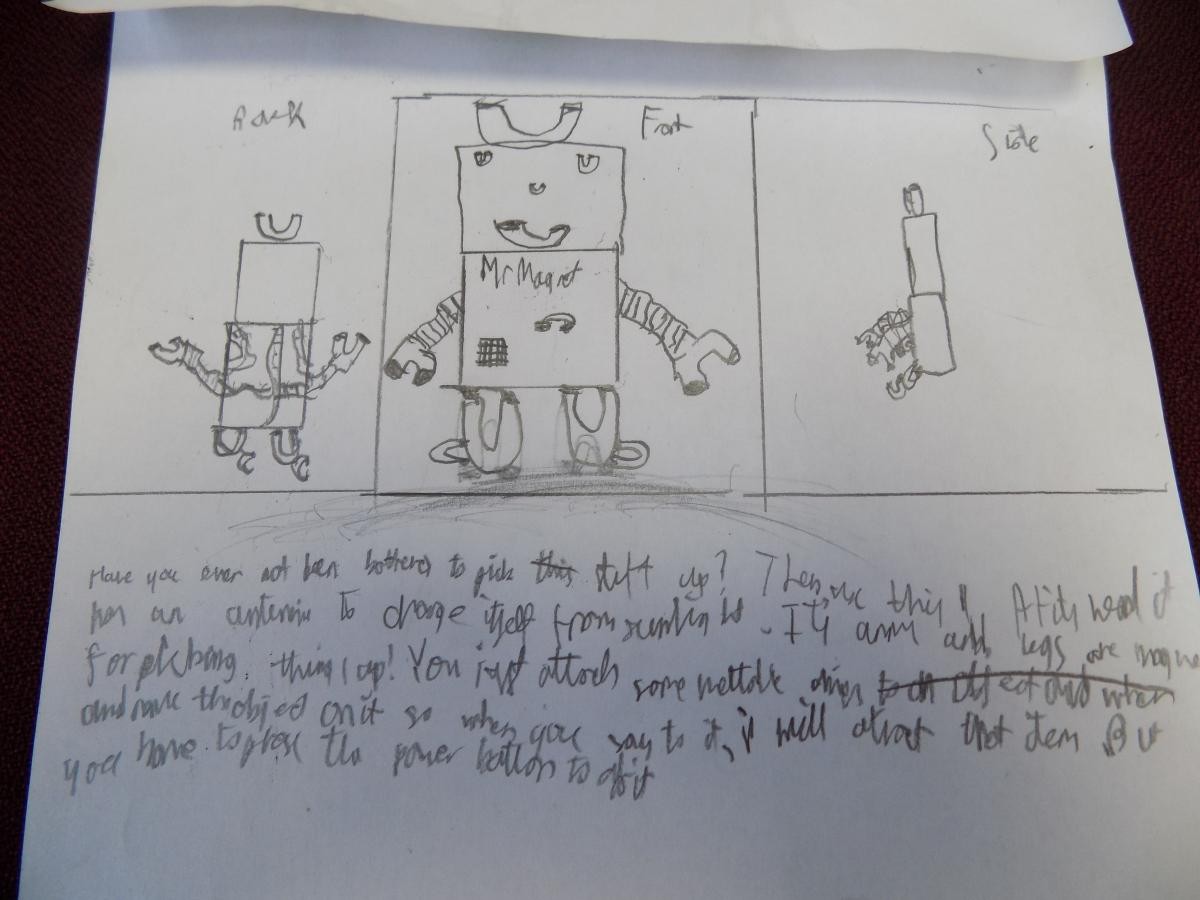 Back
Front
Side
Mr Magnet
Have you ever not been bothered to pick this stuff up? Then use this!
has an antenna to charge itself from sunlight. It's arm and legs are magne
for picking things up! You just attach some mettale to an object and when
and name the object on it so when you say to it, it will atract that item. But
you have to press the power button to